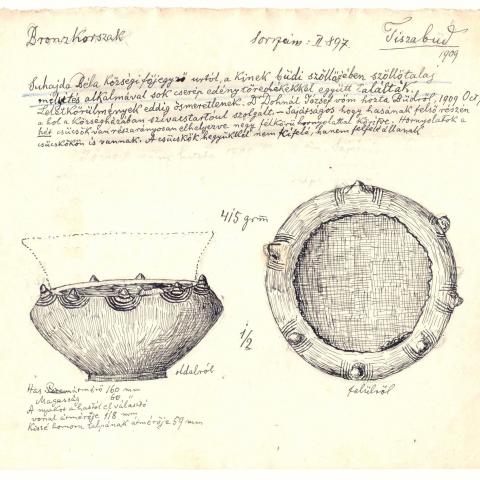 Bronzkorszak
Sorszám: II 897.
Tiszabüd
1909
Suhajda Béla községi főjegyző úrtól, a kinek büdi szöllőjében szöllőtalaj
művelés alkalmával sok cserép edény töredékekkel együtt találtak.
Leletkörülmények eddig ismeretlenek. Dr Dohnál József úr hozta Büdről, 1909 Oct,
a hol a községházában szivartartóul szolgált. – Sajátságos hogy hasának felső részén
hét csúcsok van részarányosan elhelyezve négy félkörű hornyolattal körítve. Hornyolatok a
csúcskökön is vannak. A csúcskök hegyükkel nem kifelé, hanem felfelé állanak
415 grm
1/2
oldalról
felülről
Has átmérő 160 mm
Magasság 60 "
A nyakot a hastól elválasztó
vonal átmérője 118 mm
Kissé homorú talpának átmérője 59 mm